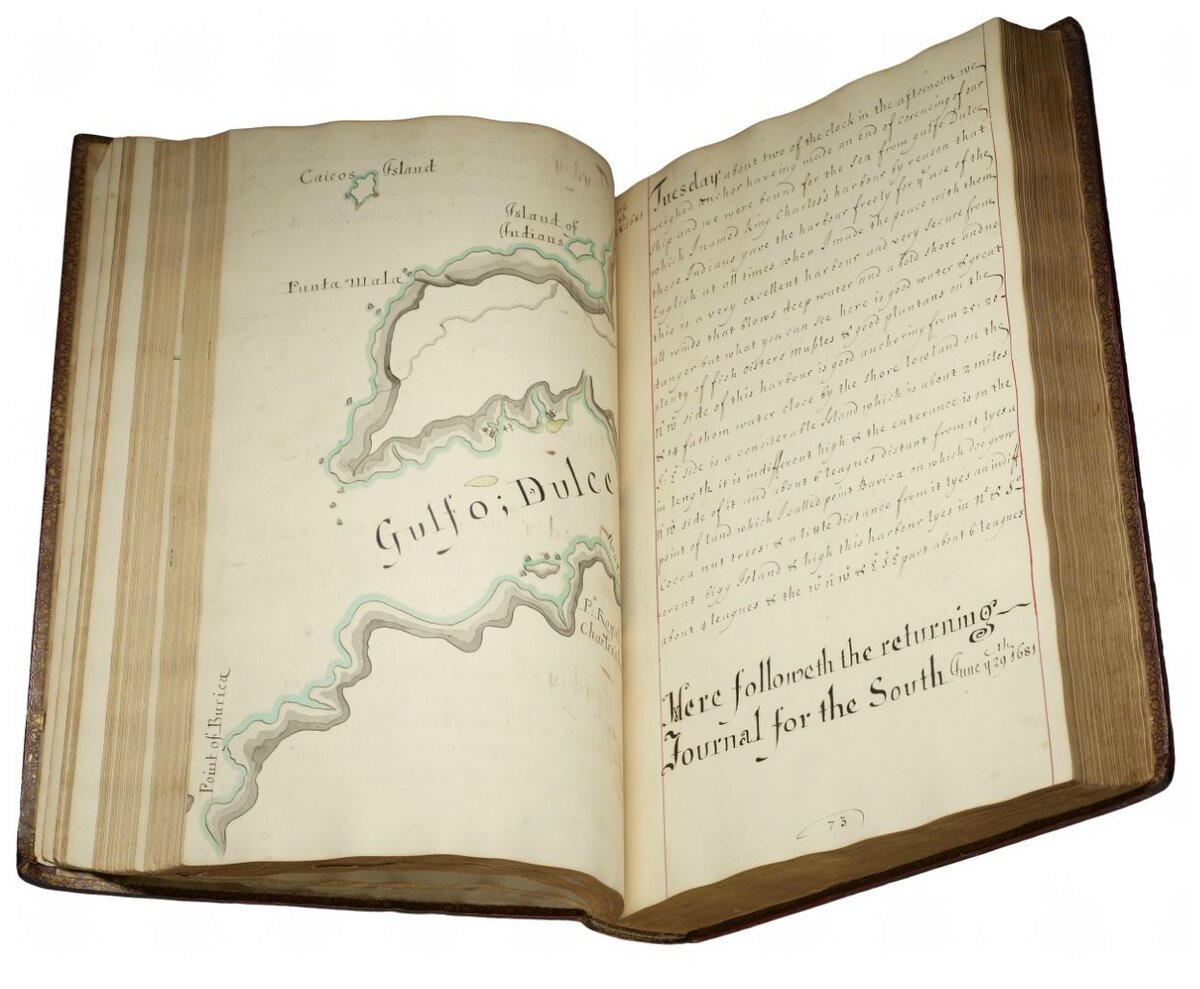 Caicos Island
Island of
Indians
Punta Mala
Gulfo; Dulce
Point of Burica
P.t Roya
Charles
1681
Tuesday about two of the clock in the afternoon we
weighed anchor haveing made an end of coreneing of our
ship and we were bound for the sea from gulfo Dulce
which I named King Charles's harbour by reason that
those Indians gave the harbour freely for ye use of the
English at all times when I made the peace with them
this is a very excellent harbour and very secure from
all winds that blows deep water and a bold shore and no
danger but what you can see here is good water & great
plenty of fish oisters mussles & good plantans on the
N W side of this harbour is good anchoring from 25: 20
& 14 fathom water close by the shore low land on the
S: E side is a considerable Island which is about 2 miles
in length it is indifferent high & the enterance is on the
N W side of it and about 6 leagues distant from it lyes a
point of land which I called point Barica on which doe grow
Cocoa nut trees: & a little distance from it lyes an indiff
erent bigg Island & high this harbour lyes in N: & S:
about 4 leagues & the W N W & E S E part about 6 leagues
Here followeth the returning
Journal for the South June ye 29th 1681
73